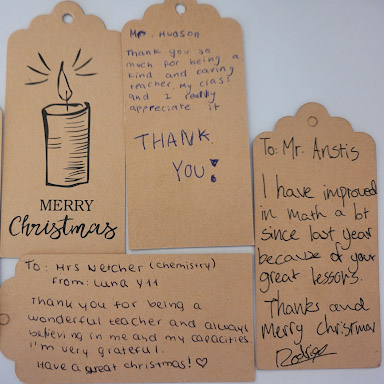 MERRY
Christmas
Mr. Hudson
Thank you so
much for being a
kind and caring
teacher. My class
and I really
appreciate it
THANK
YOU!
To: Mr. Anstis
I have improved
in math a lot
since last year
because of your
great lessons.
Thanks and
Merry Christmas
To: Mrs Netcher (Chemistry)
From: Luna Y11
Thank you for being a
wonderful teacher and always
believing in me and my capacities.
I'm very grateful.
Have a great christmas! ♡